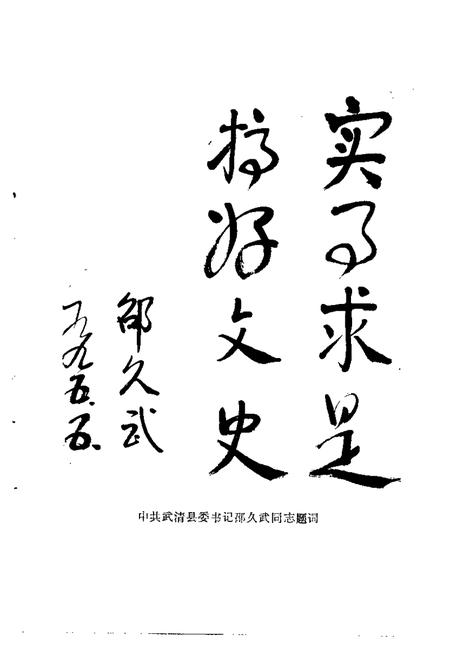 实事求是
搞好文史
邵久武
九九五.五.
中共武清县委书记邵久武同志题词